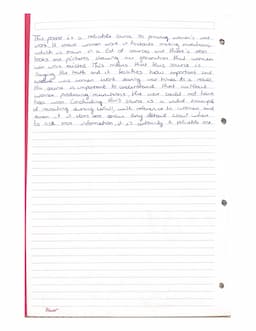 This poster is a reliable source to proving women's war
work. It shows women work in factories making munitions
which is shown in a lot of sources and there's also
books and pictures showing us generation that women
war work existed. This means that this source is
saying the truth and it teaches how important and
women war women work during war times. As a result,
this source is important to understand that without
women producing munitions, the war could not have
been won. Concluding this source is a useful example
of recruiting during WWI, with reference to women and
even if it does not show any detail about where
to ask more information, it is certainly a reliable one.